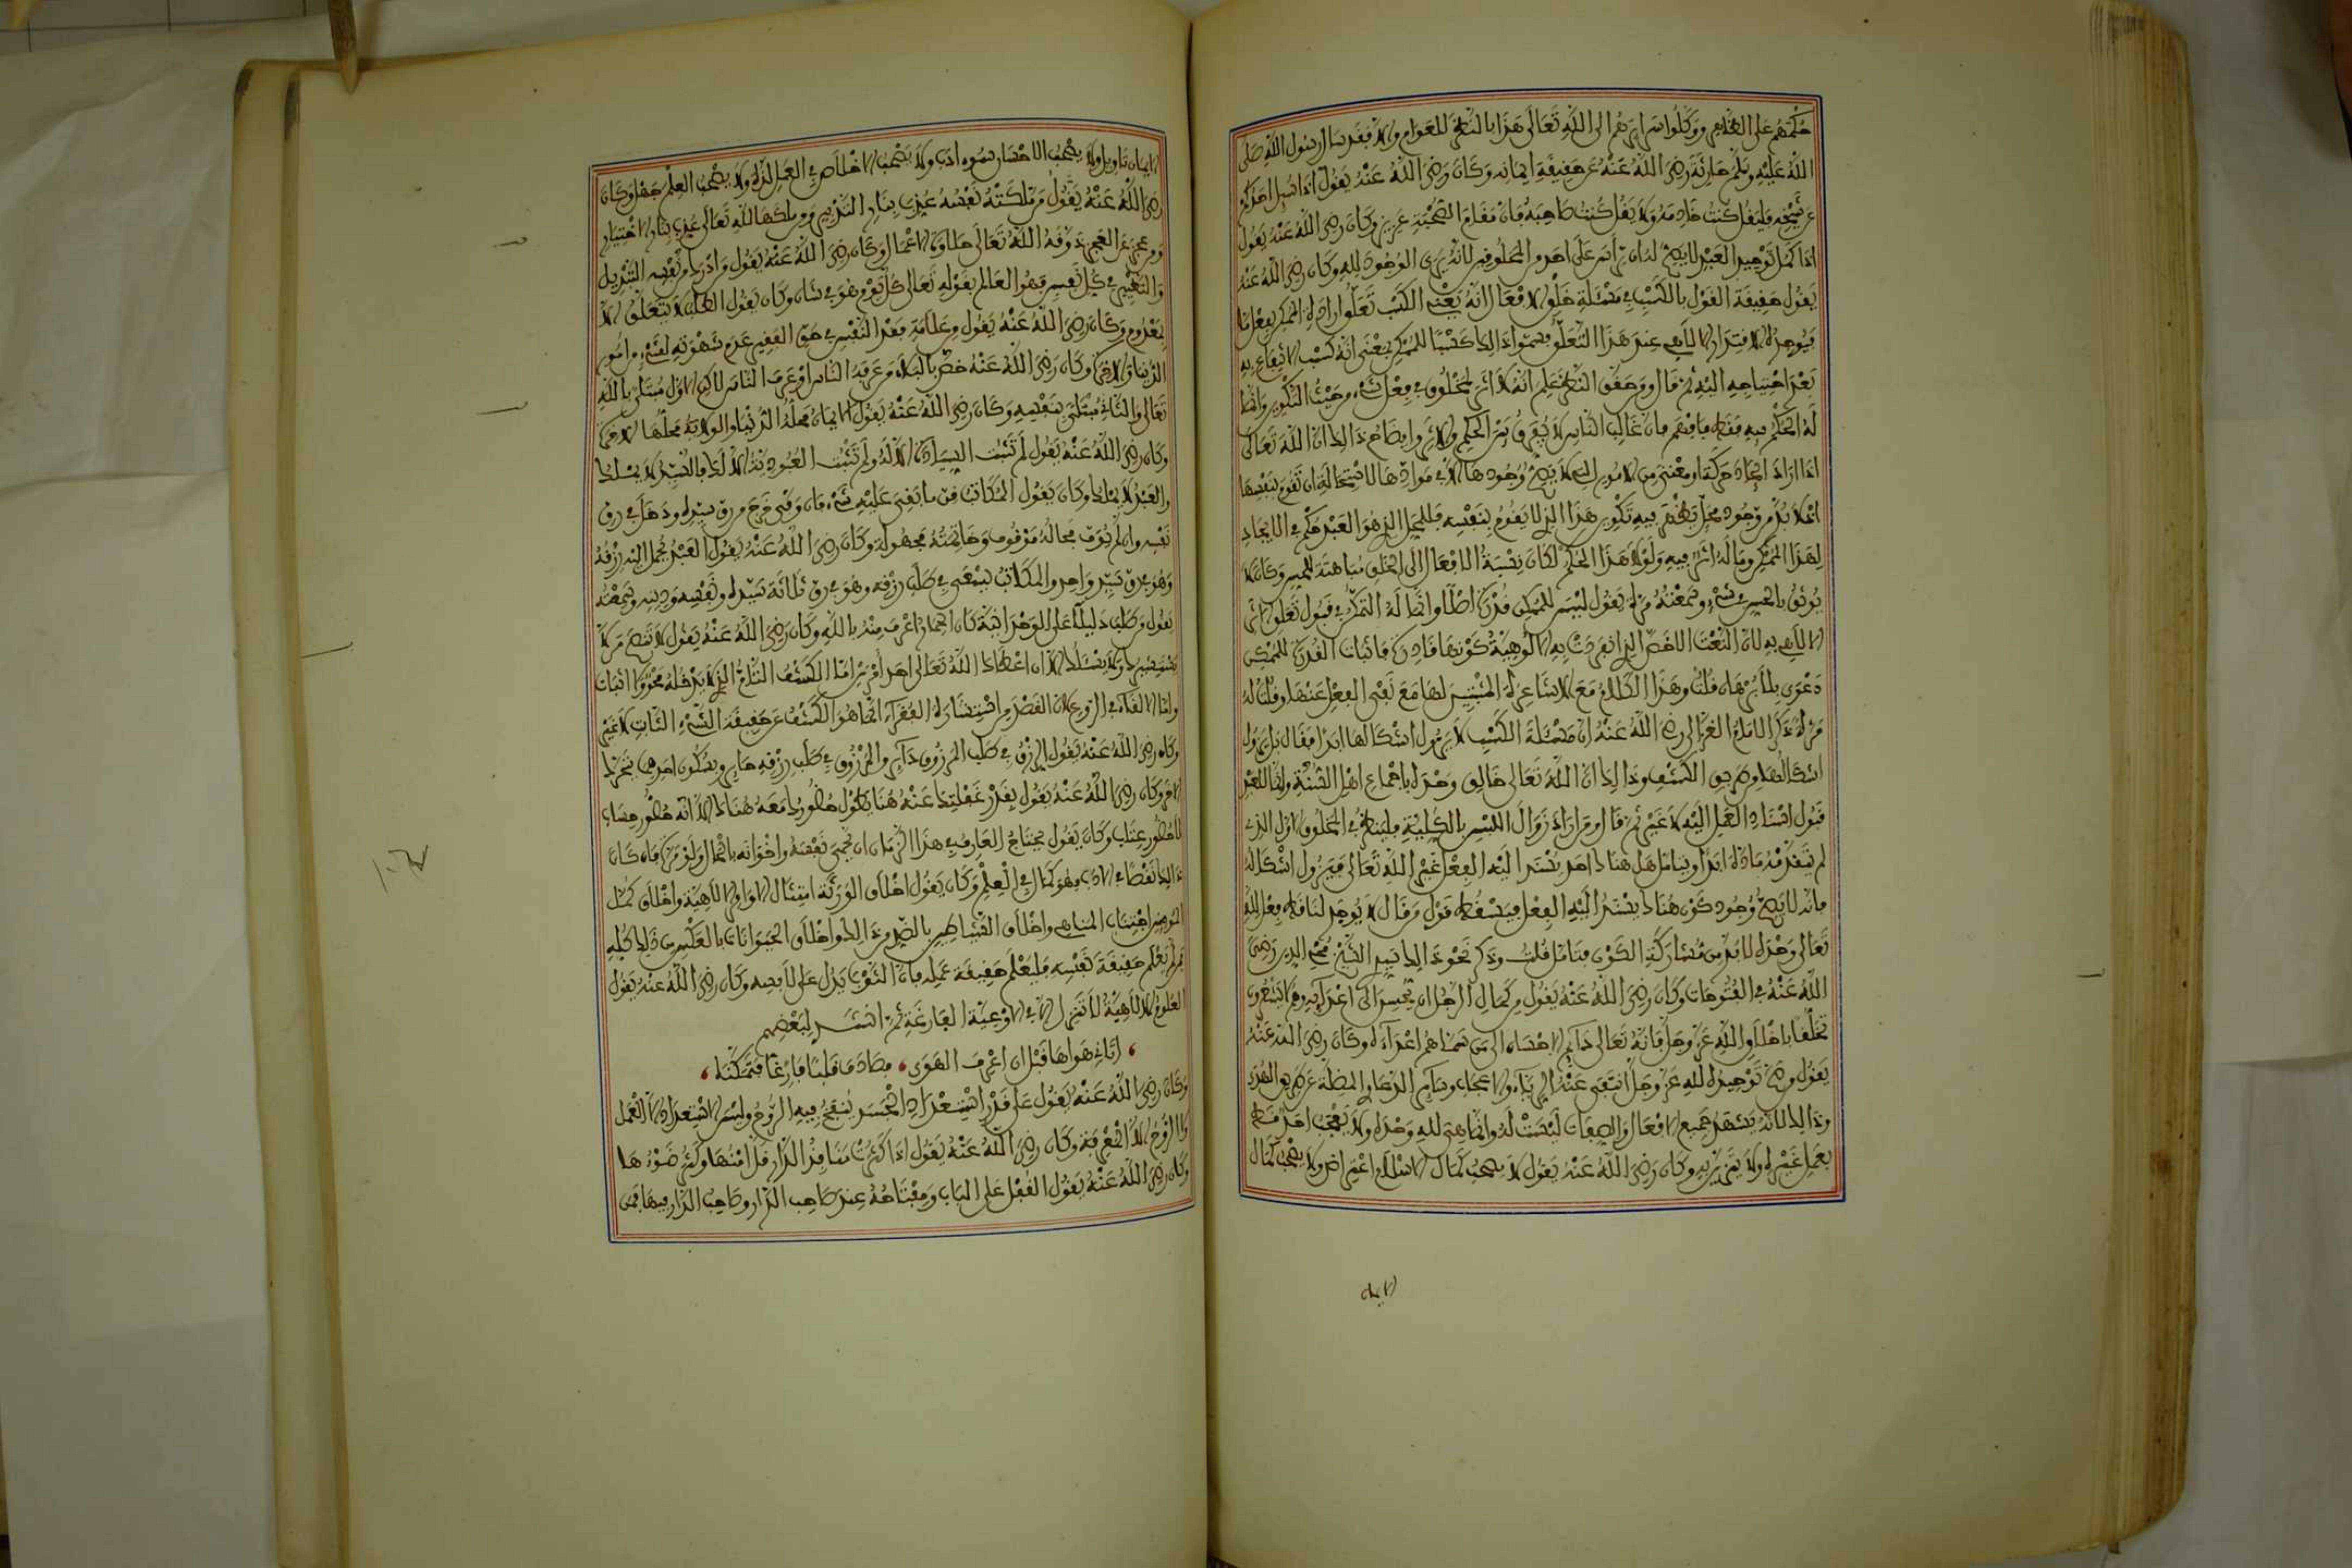 حكمهم على الظاهر ووكلوا سرايرهم الى الله تعالى هذا بالنظر للعوام والا فقد سال رسول الله صلى
الله عليه وسلم حارثة رضي الله عنه عن حقيقة ايمانه وكان رضي الله عنه يقول اذا سئل احدكم
عن شيخه فليقل كنت خادمه ولا يقل كنت صاحبه فان مقام الصحبة عزيز وكان رضي الله عنه يقول
اذا كمل توحيد العبد لا يصح له ان يراس على احد من المخلوقين لانه يرى الوجود لله وكان رضي الله عنه
يقول حقيقة القول بالكسب في مسئلة خلق الافعال انه يعني الكسب تعلق ارادة الممكن بفعل ما
فيوجده الاقتدار الالهي عند هذا التعلق فسموا ذلك كسبا للممكن بمعنى انه كسب الانتفاع به
بعد احتياجه اليه ثم قال ومن حقق النظر علم انه لا اثر لمخلوق في فعل شيء من حيث التكوين وانما
له الحكم فيه فقط فافهم فان غالب الناس لا يفرق بين الحكم والاثر وايضاح ذلك ان الله تعالى
اذا اراد ايجاد حركة او معنى من الامور التي لا يصح وجودها الا في موادها لاستحالة ان تقوم بنفسها
فلا بد من وجود محل يظهر فيه تكوين هذا الذي لا يقوم بنفسه فللمحل الذي هو العبد حكم في الايجاد
لهذا الممكن وما له اثر فيه ولولا هذا الحكم لكان نسبة الافعال الى الخلق مباهتة للحس وكان لا
يوثق بالحس في شيء وسمعته مرة يقول ليس للممكن قدرة اصلا وانما له التمكن في قبول تعلق الاثر
الالهي به لان النعت الاخص الذي انفردت به الالوهية كونها قادرة فاثبات القدرة للممكن
دعوى بلا برهان قلت وهذا الكلام مع الاشاعرة المثبتين لها مع نفي الفعل عنها وقلت له
مرة ذكر الامام الغزالي رضي الله عنه ان مسئلة الكسب لا يزول اشكالها ابدا فقال بل يزول
اشكالها من طريق الكشف وذلك ان الله تعالى خالق وحده باجماع اهل السنة وانما للعبد
قبول اسناد العمل اليه لا غير ثم قال ومن اراد زوال اللبس بالكلية فلينظر في المخلوق الاول الذي
لم تتقدمه مادة ابدا ويتامل هل هناك احد يسند اليه الفعل غير الله تعالى فيزول اشكاله
فانه لا يصح وجود كون هناك يسند اليه الفعل فيسقط قول من قال لا يوجد لنا قط فعل لله
تعالى وحده لا بد من مشاركة الكون فتامل قلت وذكر نحو ذلك سيدي الشيخ محيي الدين رضي
الله عنه في الفتوحات وكان رضي الله عنه يقول من كمال الرجل ان يحسن الى اعدائه وهم لا يشعرون
تخلقا باخلاق الله عز وجل فانه تعالى دايم الاحسان الى من سماهم اعداءه وكان رضي الله عنه
يقول من صح توحيده لله عز وجل انتفى عنه الرياء والاعجاب وسائر الدعاوى المضلة عن طريق الهدى
وذلك لانه يشهد جميع الافعال والصفات ليست له وانما هي لله وحده ولا يعجب احد قط
بعمل غيره ولا يتزين به وكان رضي الله عنه يقول لا يصحب كمال الاسلام اعتراض ولا يصحب كمال
الايمان
الايمان تاويل ولا يصحب الاحسان سوء ادب ولا يصحب الاخلاص في العمل لذة ولا يصحب العلم جهل وكان
رضي الله عنه يقول من ملكته نفسه عذب بنار التدبير ومن ملكها لله تعالى عذب بنار الاختيار
ومن عجز عن العجز ذوقه الله تعالى حلاوة الاعمال وكان رضي الله عنه يقول من ادرك من نفسه التبديل
والتغيير في كل نفس فهو العالم بقوله تعالى كل يوم هو في شان وكان يقول الطلب لا يتعلق الا
بمعدوم وكان رضي الله عنه يقول من علامة فقد النفس في حق الفقير عدم شهوته لشيء من امور
الدنيا والاخرة وكان رضي الله عنه خص بالبلاء من عرفه الناس او عرف الناس لاكن الاول مبتلى بالله
تعالى والثاني مبتلى بنفسه وكان رضي الله عنه يقول الايمان محله الدنيا والولاية محلها الاخرة
وكان رضي الله عنه يقول لم تثبت السيادة الا له ولم تثبت العبودية الا لك فالسيد لا يملك
والعبد لا يملك وكان يقول المكاتب قن ما بقي عليه شيء فان وفى خرج من رق سيده ودخل في رق
نفسه وان لم يوف فحاله موقوف وخاتمته مجهولة وكان رضي الله عنه يقول العبد يحمل اليه رزقه
وهو في رق سيد واحد والمكاتب يسعى في طلب رزقه وهو في رق ثلاثة سيده ونفسه ودينه وسمعته
يقول من طلب دليلا على الوحدانية كان الحمار اعرف منه بالله وكان رضي الله عنه يقول لا تنصح من لا
يستنصحك ولا يسئلك الا ان اعطاك الله تعالى احد امرين اما الكشف التام الذي لا يدخله محو ولا اثبات
واما الالقاء في الروع لان القصد من استشارة الفقراء انما هو الكشف عن حقيقة الشيء الثابت لا غير
وكان رضي الله عنه يقول الرزق في طلب المرزوق داير والمرزوق في طلب رزقه حاير وبسكون احدهما يتحرك
الاخر وكان رضي الله عنه يقول بقدر غفلتك عنه هنا يطول حضورك معه هناك الا انه حضور حساب
لا حضور عتاب وكان يقول يحتاج العارف في هذا الزمان ان يحمي نفسه واخوانه بالحال ولو مرة فان كان
ذلك نقصا في الادب فهو كمال في العلم وكان يقول اخلاق الورثة امتثال الاوامر الالهية واخلاق كمل
المومنين اجتناب المناهي واخلاق الشياطين بالضد من ذلك واخلاق الحيوانات بالعكس من ذلك كله
فمن لم يعلم حقيقة نفسه فليعلم حقيقة عمله فان الثوب يدل على لابسه وكان رضي الله عنه يقول
العلوم الالهية لا تنزل الا في الاوعية الفارغة ثم انشد لبعضهم
اتاني هواها قبل ان اعرف الهوى ، فصادف قلبا فارغا فتمكنا ،
وكان رضي الله عنه يقول على قدر استعداد الجسد ينفخ فيه الروح وليس الاستعداد الا العمل
ولا الروح الا المعرفة وكان رضي الله عنه يقول اذا كثرت منافذ الدار قل امنها وكثر ضوءها
وكان رضي الله عنه يقول القفل على الباب ومفتاحه عند صاحب الدار وصاحب الدار فيها فمن